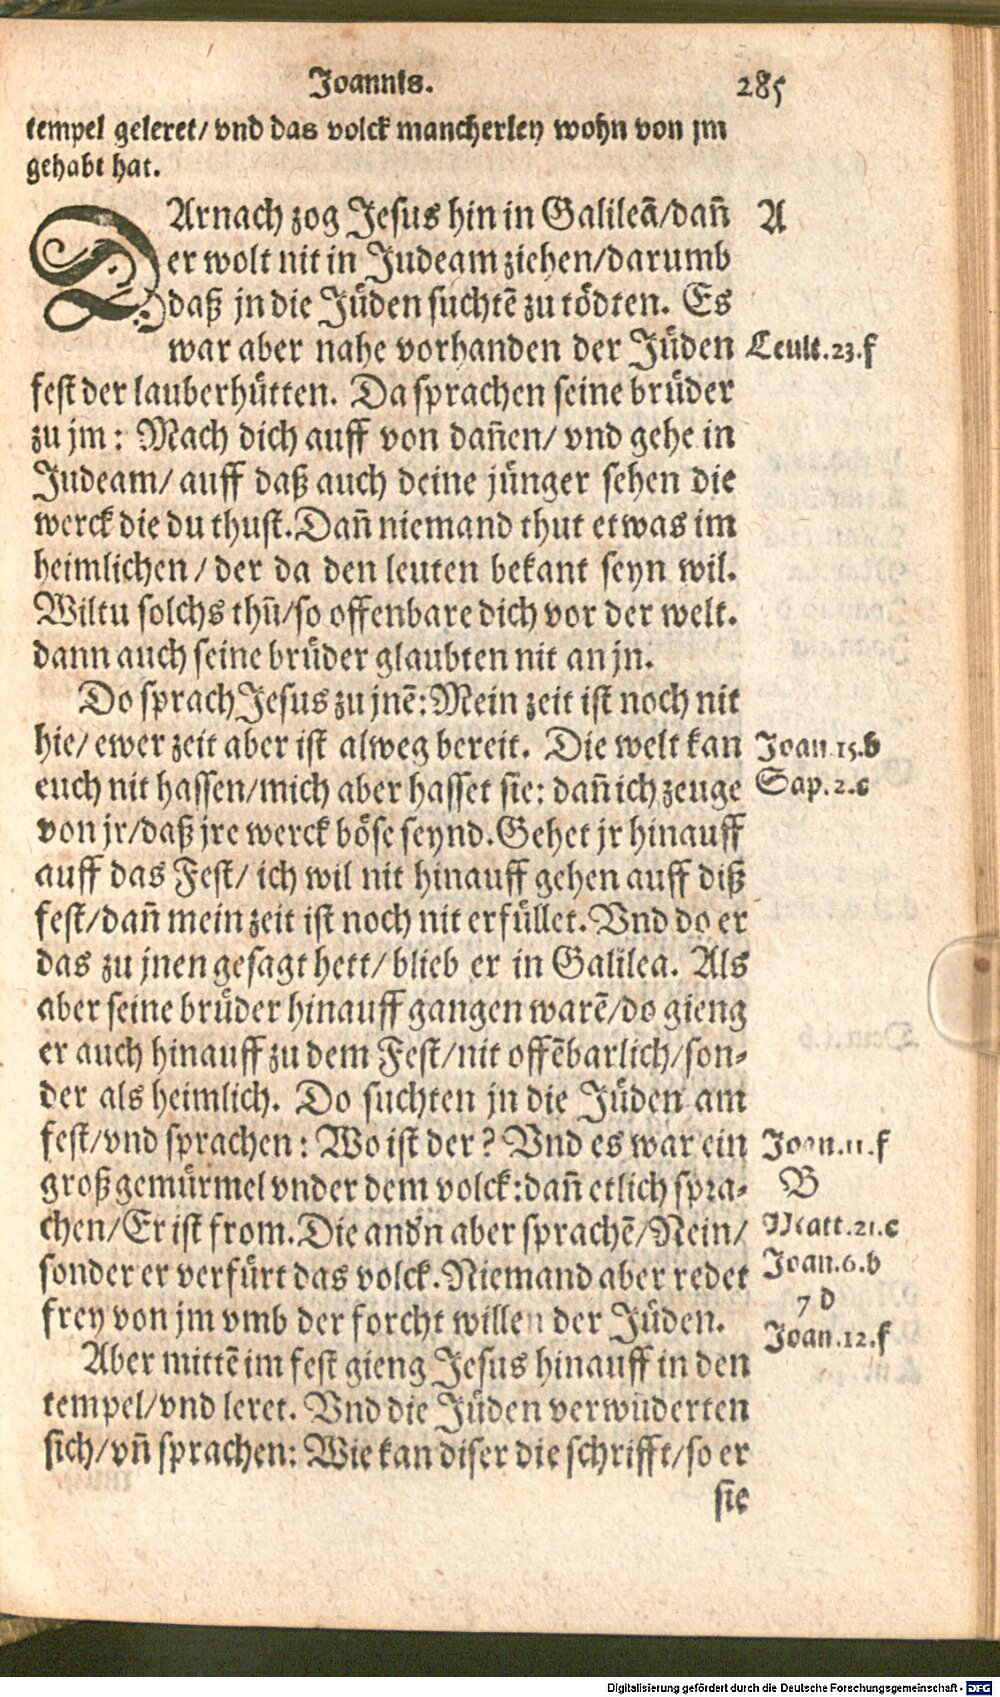 Joannis. 285
tempel geleret/ vnd das volck mancherley wohn von jm
gehabt hat.
DArnach zog Jesus hin in Galileã/dañ A
er wolt nit in Judeam ziehen/darumb
daß jn die Jüden suchtẽ zu tödten. Es
war aber nahe vorhanden der Jüden Leuit.23.f
fest der lauberhütten. Da sprachen seine brüder
zu jm: Mach dich auff von dañen/ vnd gehe in
Judeam/ auff daß auch deine jünger sehen die
werck die du thust. Dañ niemand thut etwas im
heimlichen/ der da den leuten bekant seyn wil.
Wiltu solchs thũ/so offenbare dich vor der welt.
dann auch seine brüder glaubten nit an jn.
Do sprach Jesus zu jnẽ: Mein zeit ist noch nit
hie/ ewer zeit aber ist alweg bereit. Die welt kan Joan.15.b
euch nit hassen/mich aber hasset sie: dañ ich zeuge Sap.2.c
von jr/daß jre werck böse seynd. Gehet jr hinauff
auff das Fest/ ich wil nit hinauff gehen auff diß
fest/dañ mein zeit ist noch nit erfüllet. Vnd do er
das zu jnen gesagt hett/ blieb er in Galilea. Als
aber seine brüder hinauff gangen warẽ/do gieng
er auch hinauff zu dem Fest/nit offẽbarlich/son-
der als heimlich. Do suchten jn die Jüden am
fest/vnd sprachen: Wo ist der? Vnd es war ein Joan.11.f
groß gemürmel vnder dem volck: dañ etlich spra- B
chen/Er ist from. Die andn aber sprachẽ/Nein/ Matt.21.c
sonder er verfürt das volck. Niemand aber redet Joan.6.b
7 d
frey von jm vmb der forcht willen der Jüden. Joan.12.f
Aber mittẽ im fest gieng Jesus hinauff in den
tempel/vnd leret. Vnd die Jüden verwũderten
sich/vñ sprachen: Wie kan diser die schrifft/so er
sie
Digitalisierung gefördert durch die Deutsche Forschungsgemeinschaft - DFG